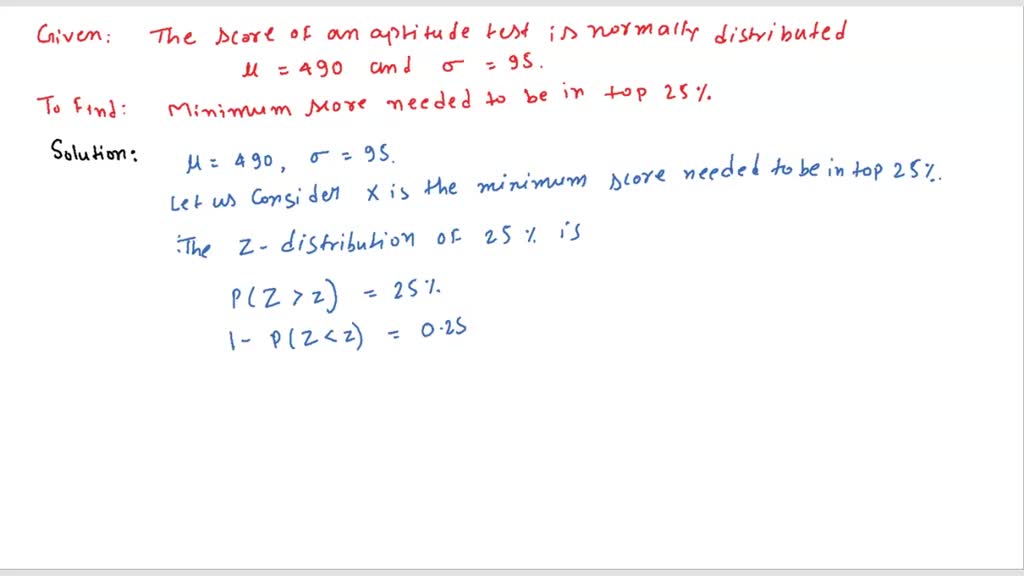 Given: The score of an aptitude test is normally distributed
μ = 490 and σ = 95.
To Find: Minimum score needed to be in top 25%.
Solution: μ = 490, σ = 95.
Let us Consider X is the minimum score needed to be in top 25%.
∴The Z-distribution of 25% is
P(Z > z) = 25%
1 - P(Z < z) = 0.25